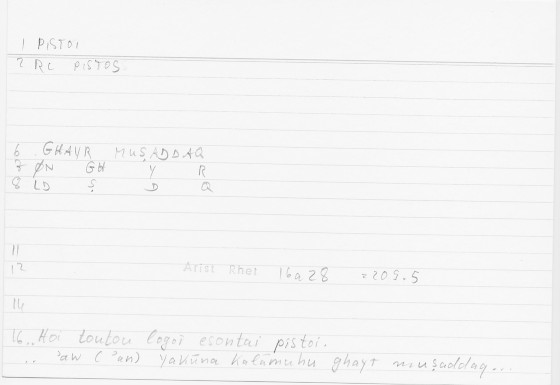 1 PISTOI
2 RC PISTOS
6 GHAYR MUṢADDAQ
7 ØN GH Y R
8 LD Ṣ D Q
11
12 Arist Rhet 16a28 =209.5
14
16 ..Hoi toutou logoi esontai pistoi.
.. ʾaw (ʾan) yakūna kalāmuhu ghayr muṣaddaq...